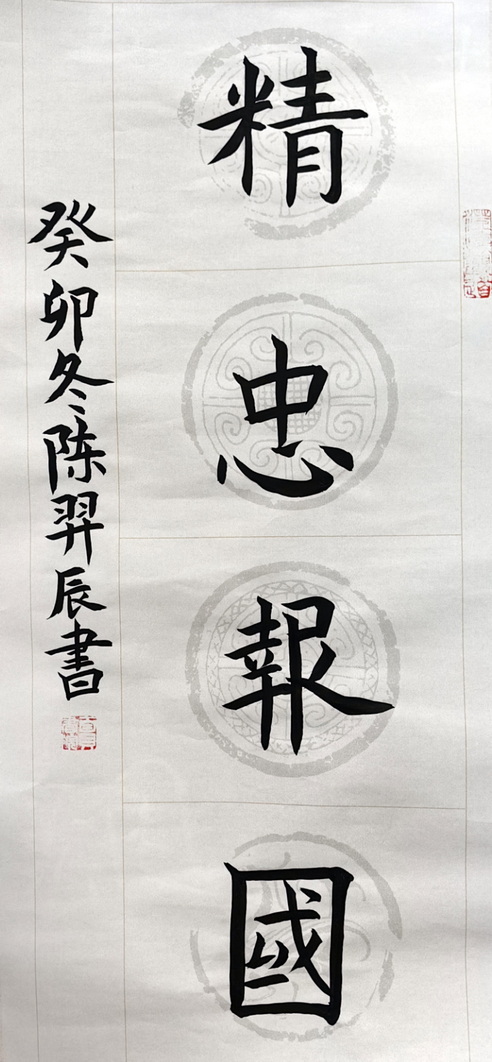 精忠報國
癸卯冬陈羿辰書